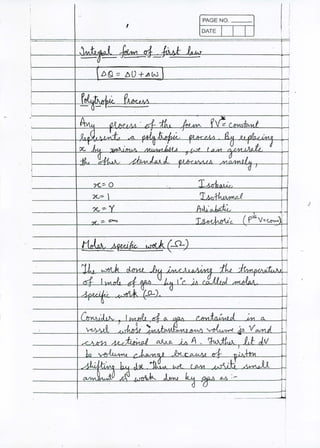 PAGE NO.
DATE
Integral form of first law
ΔQ = ΔU + ΔW
Polytropic Process
Any process of the form PVˣ = Constant
represents a polytropic process. By replacing
x by various numbers, we can generate
the other standard processes namely,
x = 0 Isobaric
x = 1 Isothermal
x = γ Adiabatic
x = ∞ Isochoric (P V = cons)
Molar specific work (Ω)
The work done by increasing the temperature
of 1 mole of gas by 1°C is called molar
specific work (Ω).
Consider, 1 mole of a gas contained in a
vessel whose instantaneous volume is V and
cross sectional area is A. Further, let dV
be volume change because of piston
shifting by dx. Then we can write small
amount of work done by gas as :-